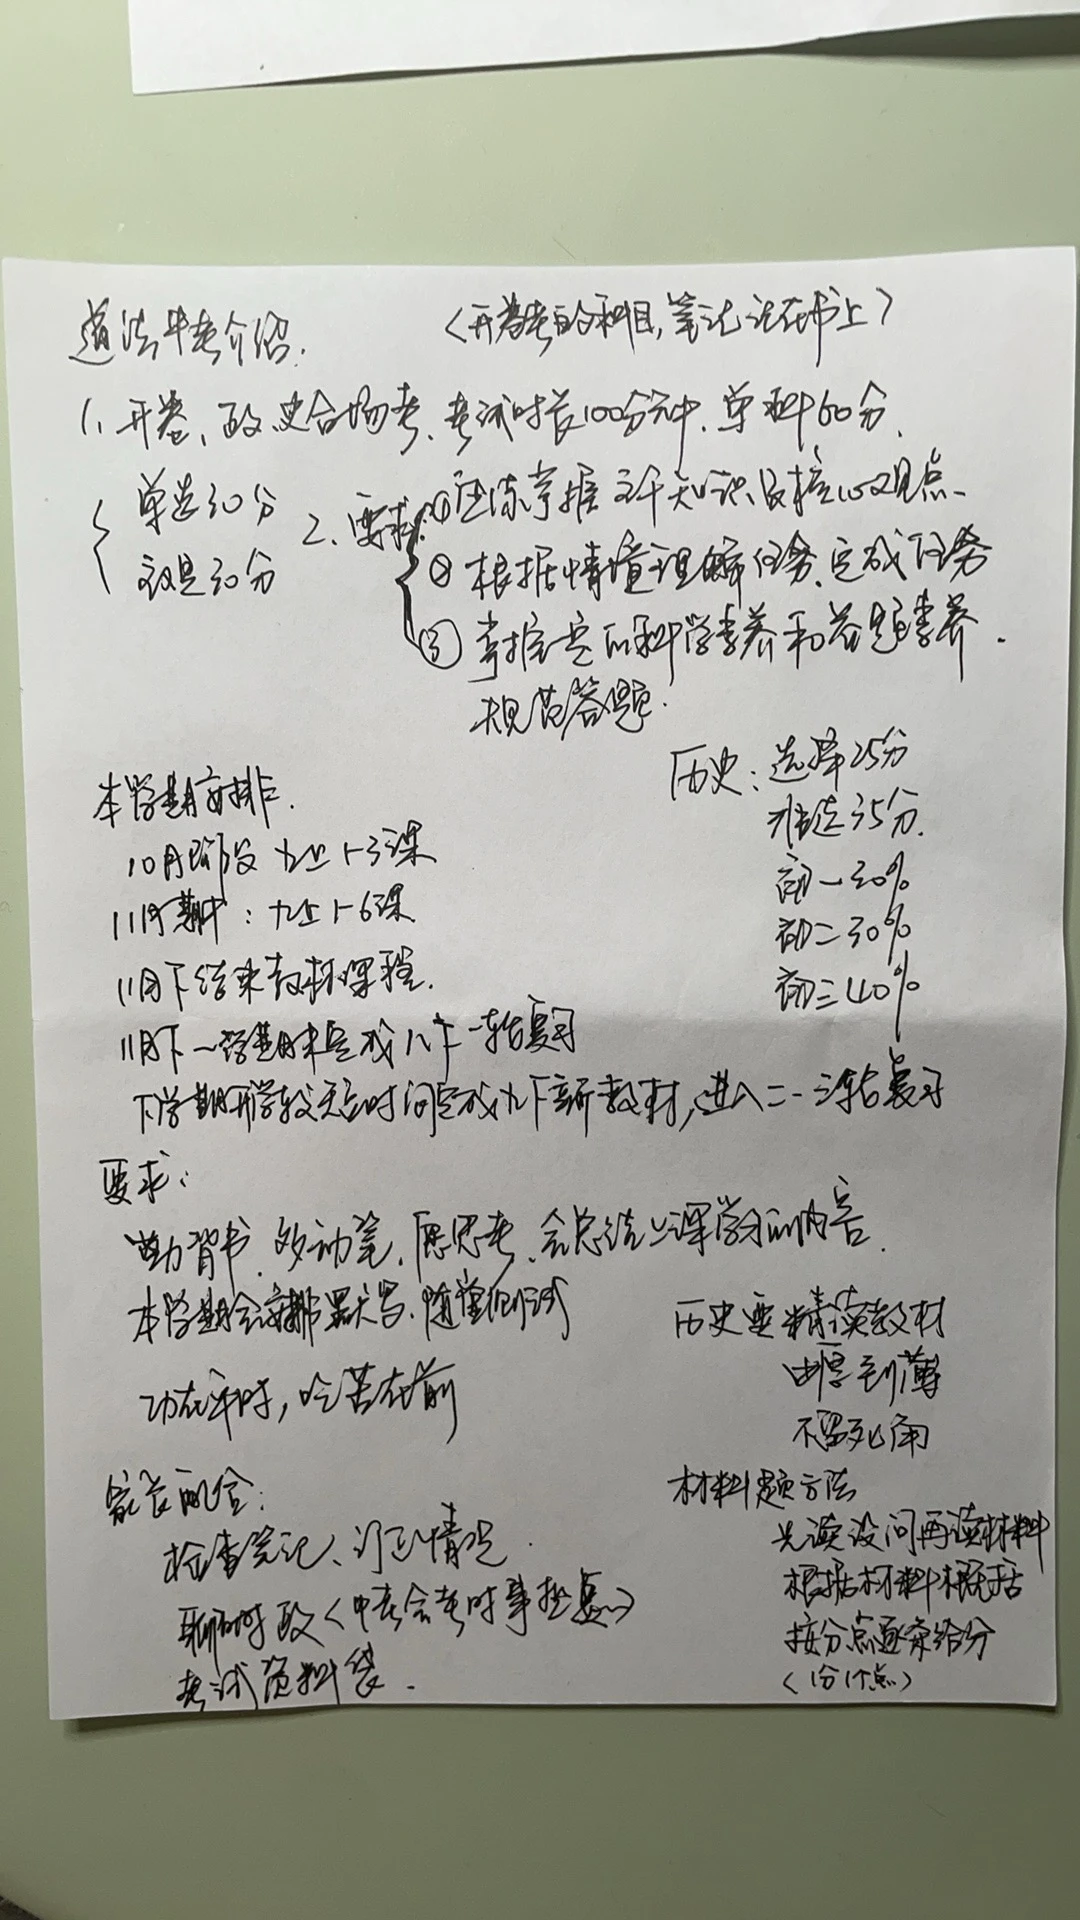 道法中考介绍.
〈开卷考的科目,笔记记在书上〉
1、开卷、政史合场考、考试时长100分钟、单科60分、
单选30分
非选30分
2、要求:①熟练掌握主干知识及核心观点、
②根据情境理解任务、完成任务
③掌握一定的科学素养和答题素养.
规范答题.
历史:选择25分
非选35分.
初一30%
初二30%
初三40%
本学期安排.
10月阶段 九上1-3课
11月期中:九上1-6课
11月下结束教材课程.
11月下一学期末完成八下一轮复习
下学期开学较短时间完成九下新教材,进入二-三轮复习
要求:
勤背书、多动笔、愿思考、会总结上课学习的内容.
本学期会安排默写、随堂测试
功在平时,吃苦在前
历史要精读教材
由厚到薄
不留死角
材料题方法
先读设问再读材料
根据材料概括
按分点逐条给分
(1分1个点)
家长配合:
检查笔记、订正情况.
聊时政〈中考会考时事热点〉
考试资料袋.